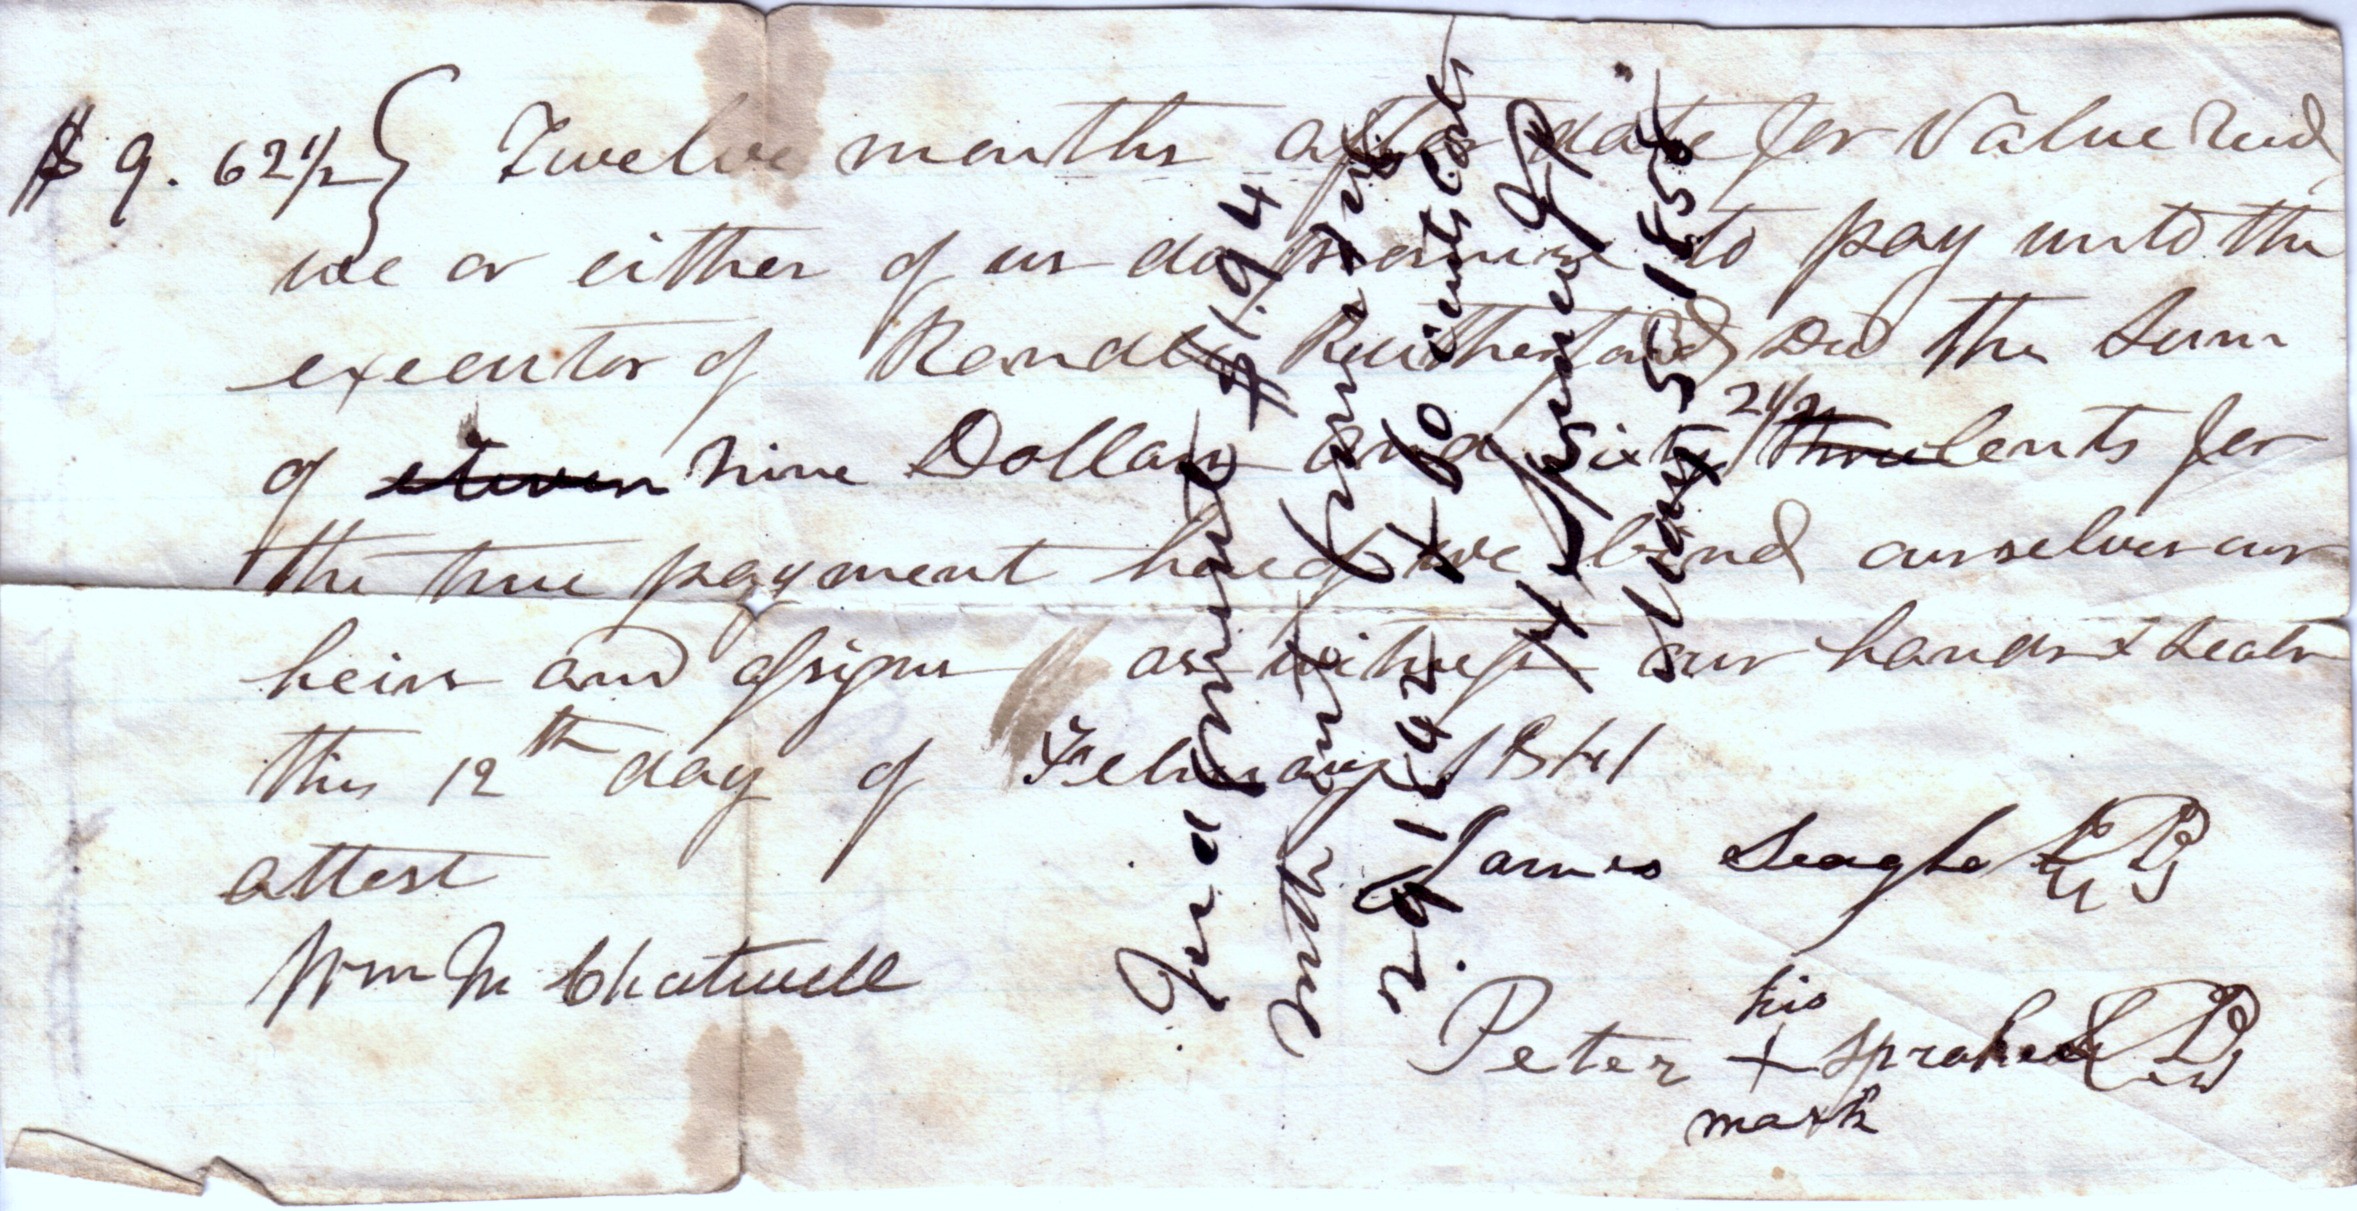 $ 9. 62 1/2 } Twelve months after date for Value Recd
we or either of us do promise to pay unto the
executor of Rutherford Decd the Sum
of eleven nine Dollars and sixty 2 1/2 three Cents for
the true payment we bind ourselves our
heirs and assigns as witness our hands & seals
this 12th day of February 1841
attest
James Seagle
Wm M Chatwell
his
Peter + Spraker
mark
Judgment $1.94
with int from
29 1842 + 60 cents cost
H J P
May 5 1855